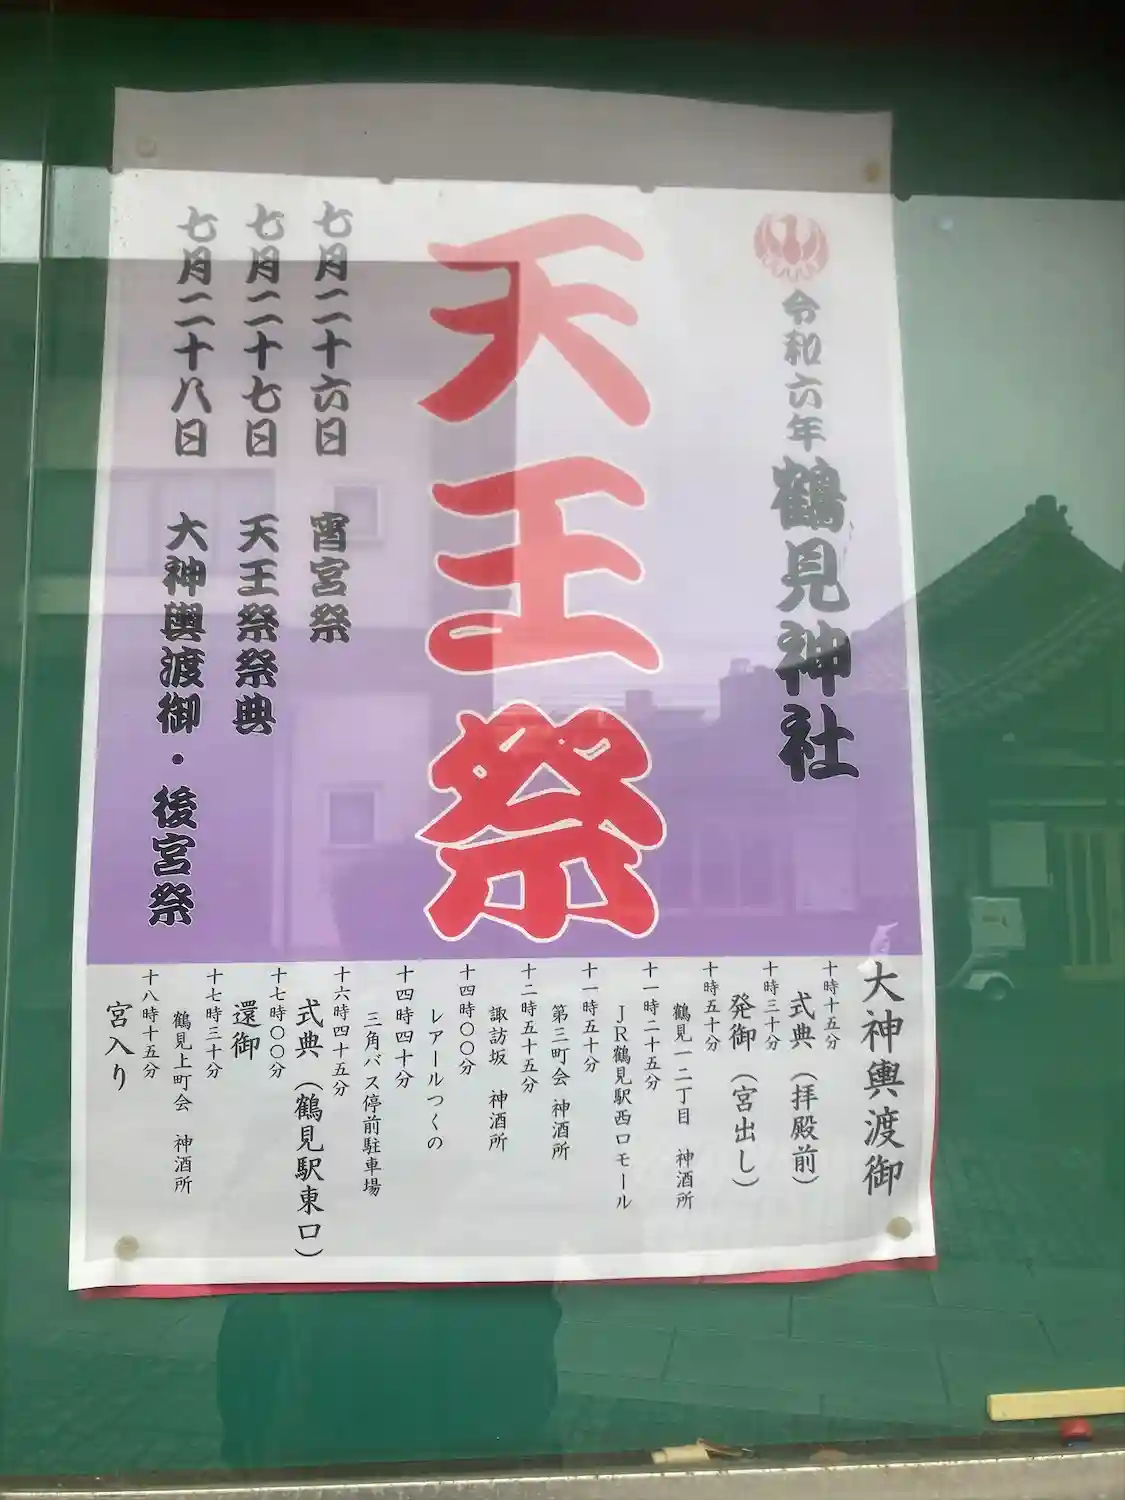 令和六年 鶴見神社
天王祭
七月二十六日 宵宮祭
七月二十七日 天王祭祭典
七月二十八日 大神輿渡御・後宮祭
大神輿渡御
十時十五分
式典（拝殿前）
十時三十分
発御（宮出し）
十時五十分
鶴見一二丁目 神酒所
十一時二十五分
ＪＲ鶴見駅西口モール
十一時五十分
第三町会 神酒所
十二時五十五分
諏訪坂 神酒所
十四時〇〇分
レアールつくの
十四時四十分
三角バス停前駐車場
十六時四十五分
式典（鶴見駅東口）
十七時〇〇分
還御
十七時三十分
鶴見上町会 神酒所
十八時十五分
宮入り